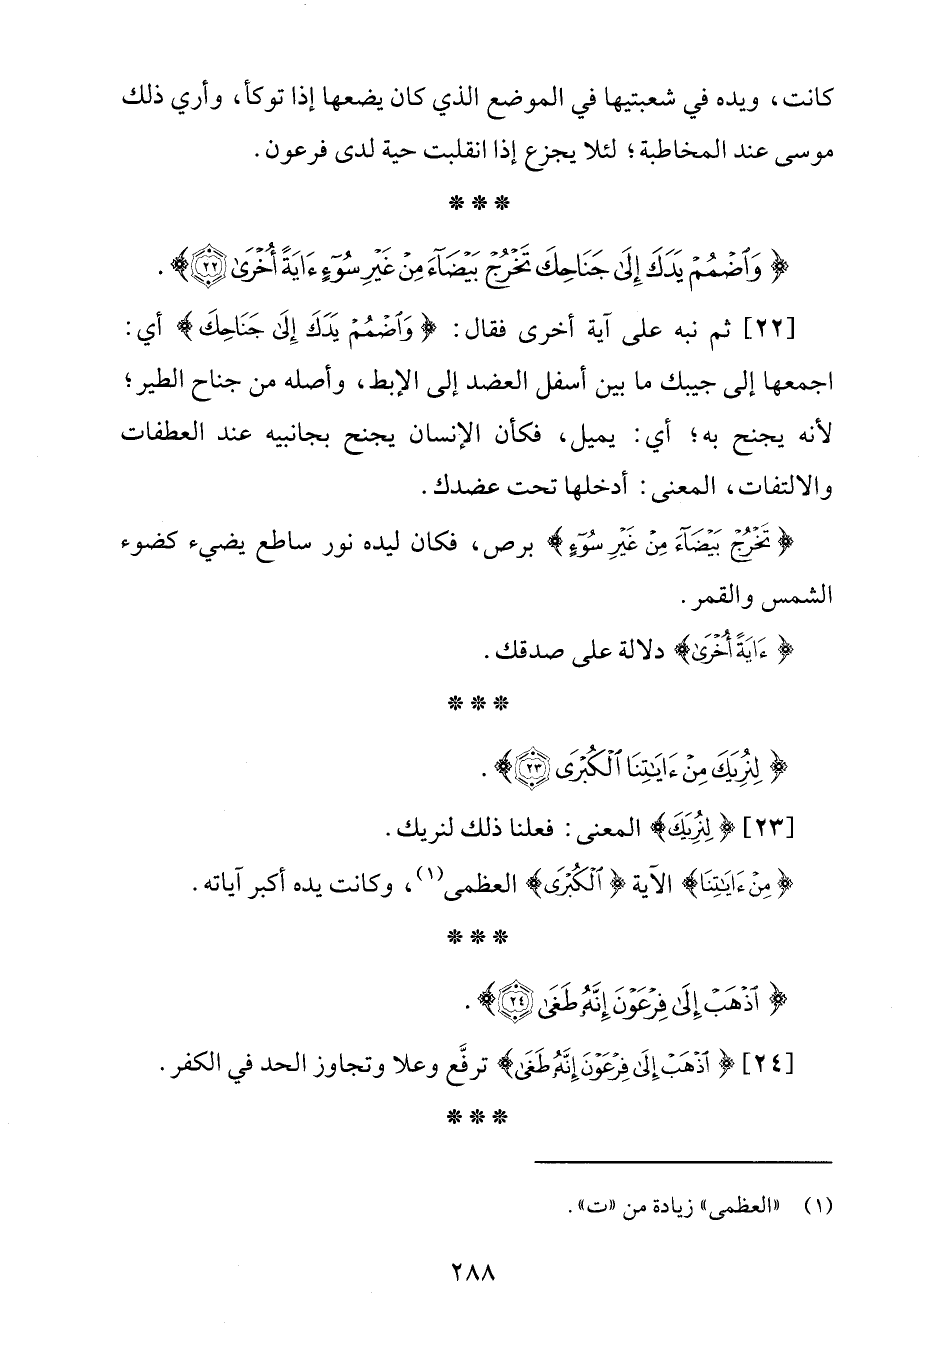 كانت، ويده في شعبتيها في الموضع الذي كان يضعها إذا توكأ، وأري ذلك
موسى عند المخاطبة؛ لئلا يجزع إذا انقلبت حية لدى فرعون.
* * *
﴿ وَٱضۡمُمۡ يَدَكَ إِلَىٰ جَنَاحِكَ تَخۡرُجۡ بَيۡضَآءَ مِنۡ غَيۡرِ سُوٓءٍ ءَايَةً أُخۡرَىٰ ٢٢﴾.
[٢٢] ثم نبه على آية أخرى فقال: ﴿ وَٱضۡمُمۡ يَدَكَ إِلَىٰ جَنَاحِكَ ﴾ أي:
اجمعها إلى جيبك ما بين أسفل العضد إلى الإبط، وأصله من جناح الطير؛
لأنه يجنح به؛ أي: يميل، فكأن الإنسان يجنح بجانبيه عند العطفات
والالتفات، المعنى: أدخلها تحت عضدك.
﴿ تَخۡرُجۡ بَيۡضَآءَ مِنۡ غَيۡرِ سُوٓءٍ ﴾ برص، فكان ليده نور ساطع يضيء كضوء
الشمس والقمر.
﴿ ءَايَةً أُخۡرَىٰ﴾ دلالة على صدقك.
* * *
﴿ لِنُرِيَكَ مِنۡ ءَايَٰتِنَا ٱلۡكُبۡرَى ٢٣﴾.
[٢٣] ﴿ لِنُرِيَكَ﴾ المعنى: فعلنا ذلك لنريك.
﴿ مِنۡ ءَايَٰتِنَا﴾ الآية ﴿ ٱلۡكُبۡرَى﴾ العظمى(١)، وكانت يده أكبر آياته.
* * *
﴿ ٱذۡهَبۡ إِلَىٰ فِرۡعَوۡنَ إِنَّهُۥ طَغَىٰ ٢٤﴾.
[٢٤] ﴿ ٱذۡهَبۡ إِلَىٰ فِرۡعَوۡنَ إِنَّهُۥ طَغَىٰ﴾ ترفَّع وعلا وتجاوز الحد في الكفر.
* * *
(١) «العظمى» زيادة من «ت».
٢٨٨